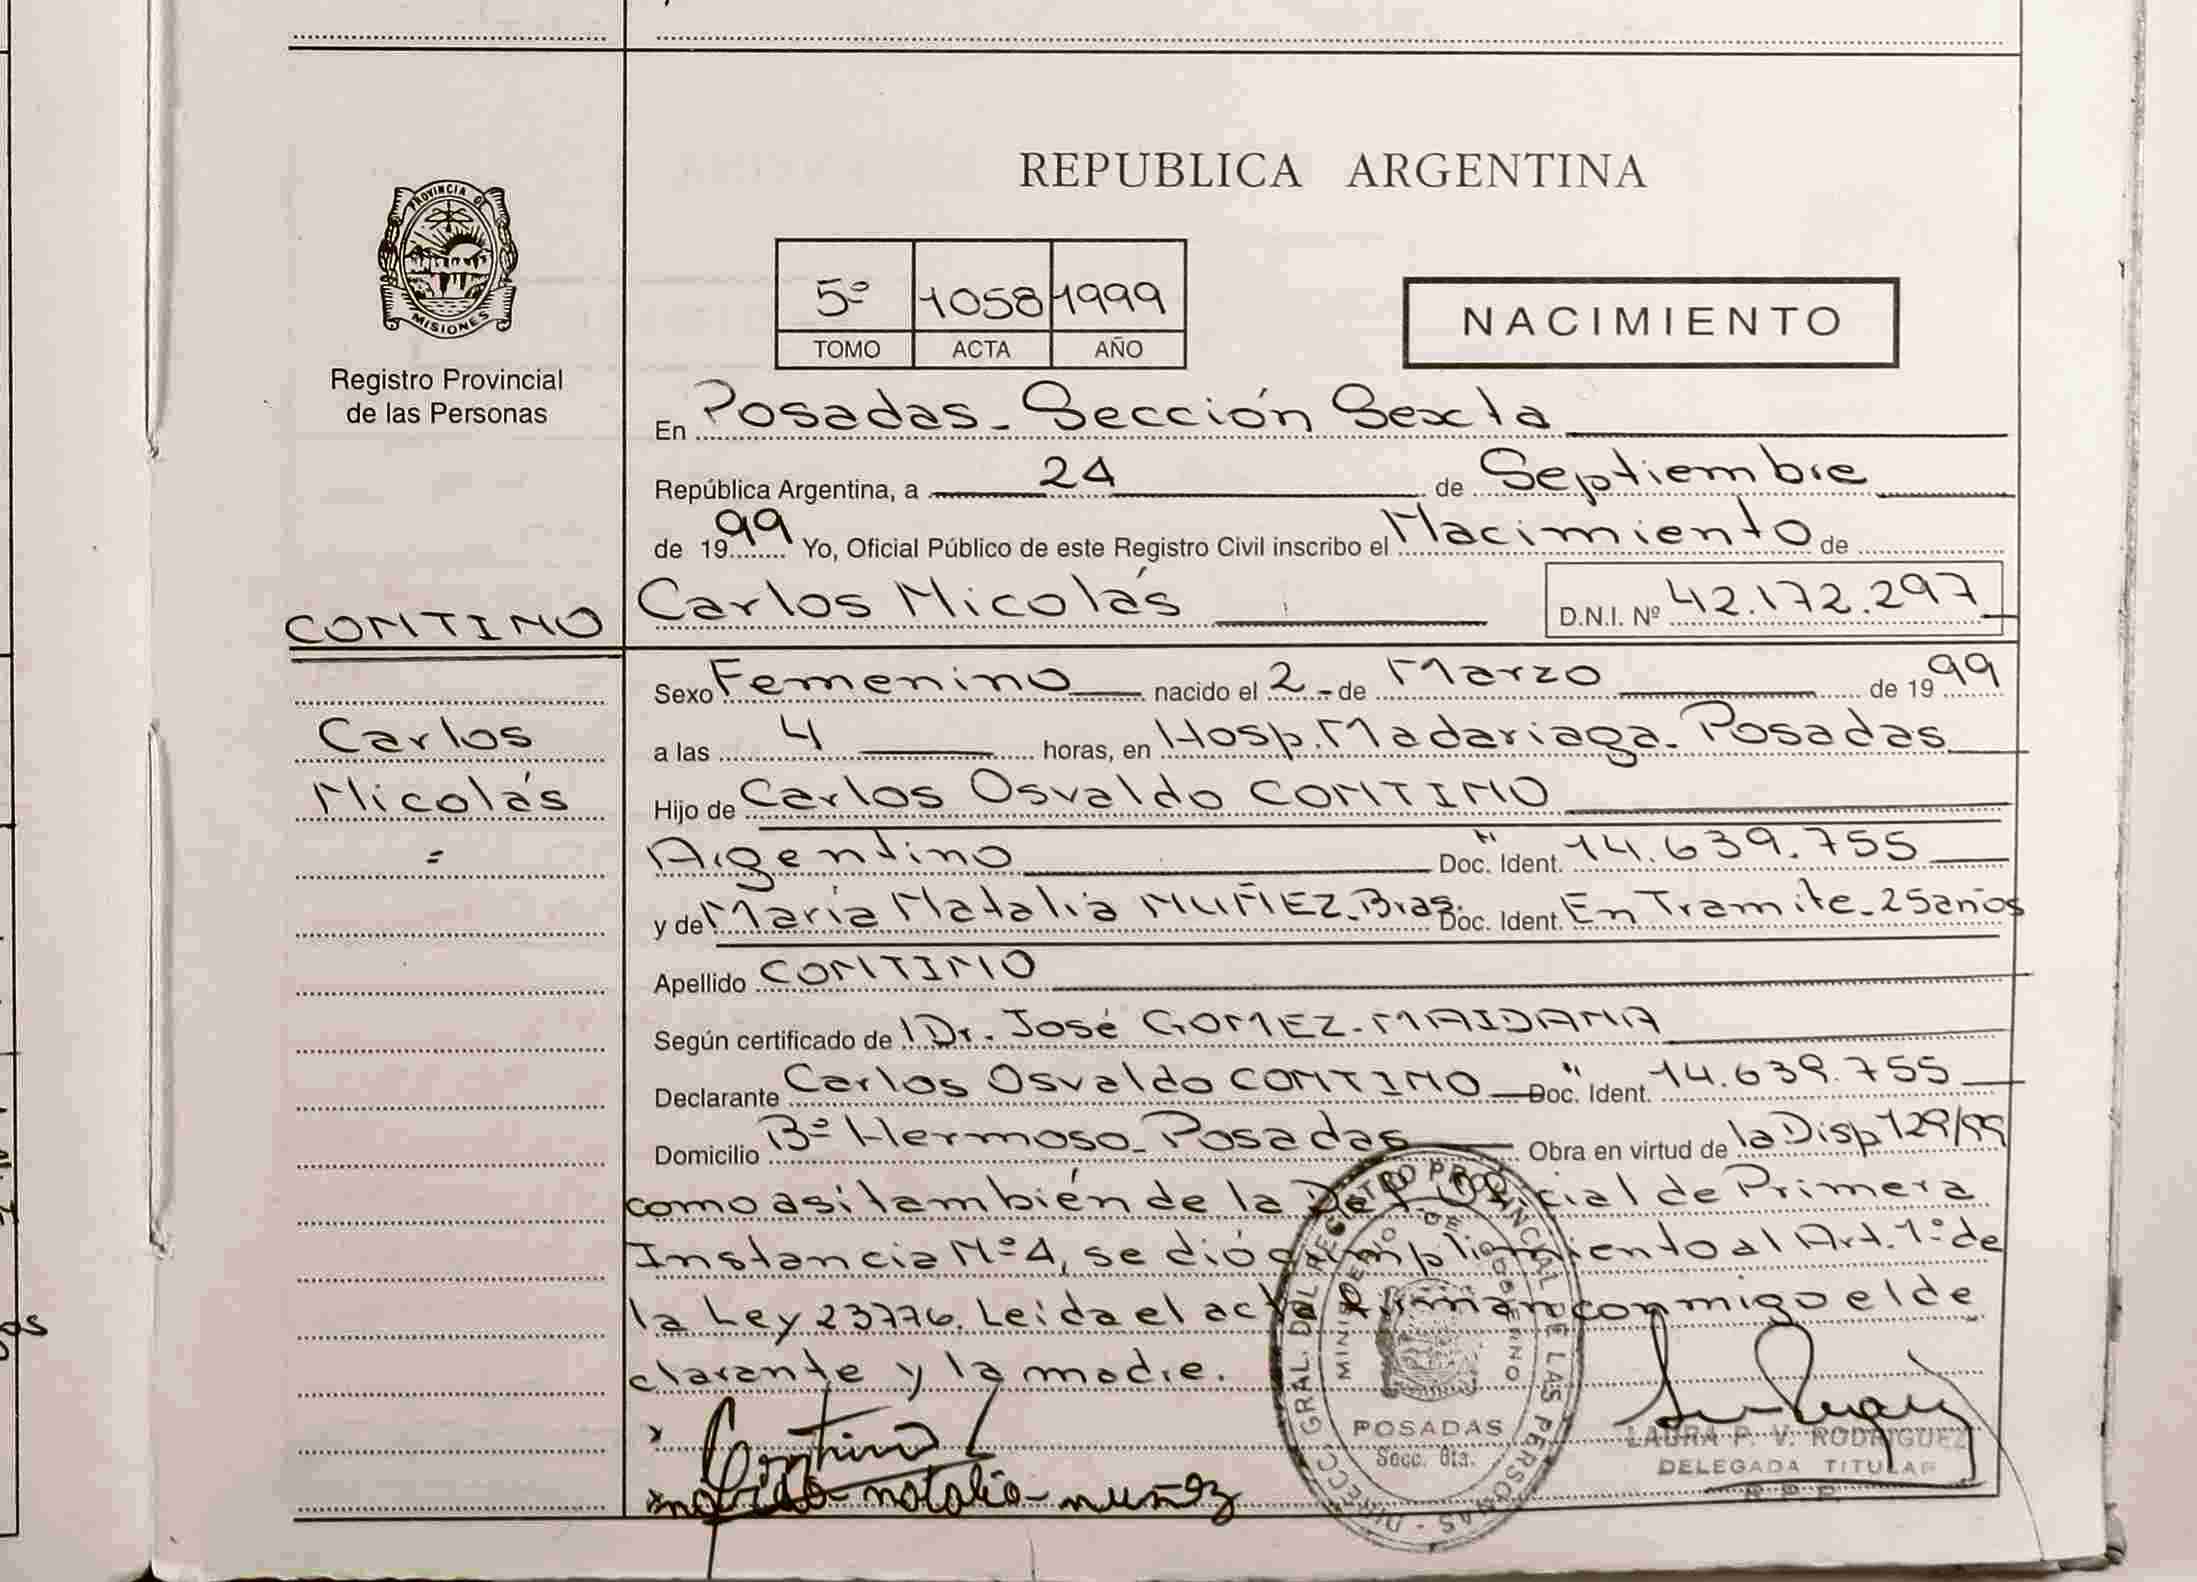 REPUBLICA ARGENTINA
PROVINCIA DE
MISIONES
Registro Provincial
de las Personas
5º 1058 1999
TOMO ACTA AÑO
NACIMIENTO
En Posadas - Sección Sexta
República Argentina, a 24 de Septiembre
de 1999 Yo, Oficial Público de este Registro Civil inscribo el Nacimiento de
CONTINO Carlos Nicolás D.N.I. Nº 42.172.297
Sexo Femenino nacido el 2 - de Marzo de 1999
Carlos a las 4 horas, en Hosp. Madariaga - Posadas
Nicolás Hijo de Carlos Osvaldo CONTINO
= Argentino Doc. Ident. 14.639.755
y de María Natalia MUÑEZ - Bras. Doc. Ident. En Tramite - 25 años
Apellido CONTINO
Según certificado de Dr. José GOMEZ - MAIDANA
Declarante Carlos Osvaldo CONTINO Doc. Ident. 14.639.755
Domicilio Bº Hermoso - Posadas Obra en virtud de la Disp 129/99
como asi también de la de Primera
Instancia Nº 4, se dió cumplimiento al Art. 1º de
la Ley 23776. Leida el acta firman conmigo el de
clarante y la madre.
Contino
maria - natalia - muñez
DIRECC. GRAL. DEL REGISTRO PROVINCIAL DE LAS PERSONAS -
MINISTERIO DE GOBIERNO
POSADAS
Secc. 6ta.
LAURA P. V. RODRIGUEZ
DELEGADA TITULAR
R.P.P.